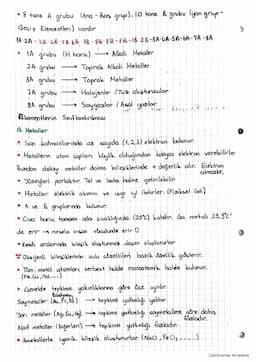 • 8 tane A grubu (Ana - Baş grup), 10 tane B grubu (yan grup-
Geçiş Elementleri) vardır
1A 2A - 3B 4B 5B 6B 7B 8B 8B 8B 1B 2B 3A 4A 5A 6A 7A 8A
• 1A grubu (H hariç) → Alkali Metaller
• 2A grubu → Toprak Alkali Metaller
• 3A grubu → Toprak Metaller
• 7A grubu → Halojenler / Tuz oluşturucular
• 8A grubu → Soygazlar / Asal gazlar
Elementlerin Sınıflandırılması
A. Metaller
• Son katmanlarında az sayıda (1,2,3) elektron bulunur.
• Metallerin atom çapları büyük olduğundan kolayca elektron verebilirler.
Bundan dolayı metaller daima bileşiklerinde + değerlik alır. Elektron almazlar.
• Yüzeyleri parlaktır. Tel ve levha haline getirilebilir.
• Metaller elektrik akımını ve ısıyı iyi iletirler. (Fiziksel)
• A ve B gruplarında bulunur.
• Cıva hariç tamamı oda sıcaklığında (25°C) katıdır. Ga metali 29,8°C
de erir → mesela insan vücudunda erir
• Kendi aralarında bileşik oluşturmaz alaşım oluştururlar
Oksijenli bileşiklerinin sulu çözeltileri bazik özellik gösterir.
• Tüm metal atomları serbest halde monoatomik halde bulunur.
(Fe, Cu, Na...)
• Genelde tepkime yatkınlıklarına göre üçe ayrılır
Soymetaller (Au, Pt, Pd) → tepkime yatkınlığı yoktur
Yarı metaller (Ag, Cu, Hg) → tepkime yatkınlığı soymetallere göre daha fazladır.
Aktif metaller (Diğerleri) → tepkime yatkınlığı fazladır
• Ametallerle iyonik bileşik oluştururlar (NaCl, FeCl₂, ...)
CamScanner ile tarandı